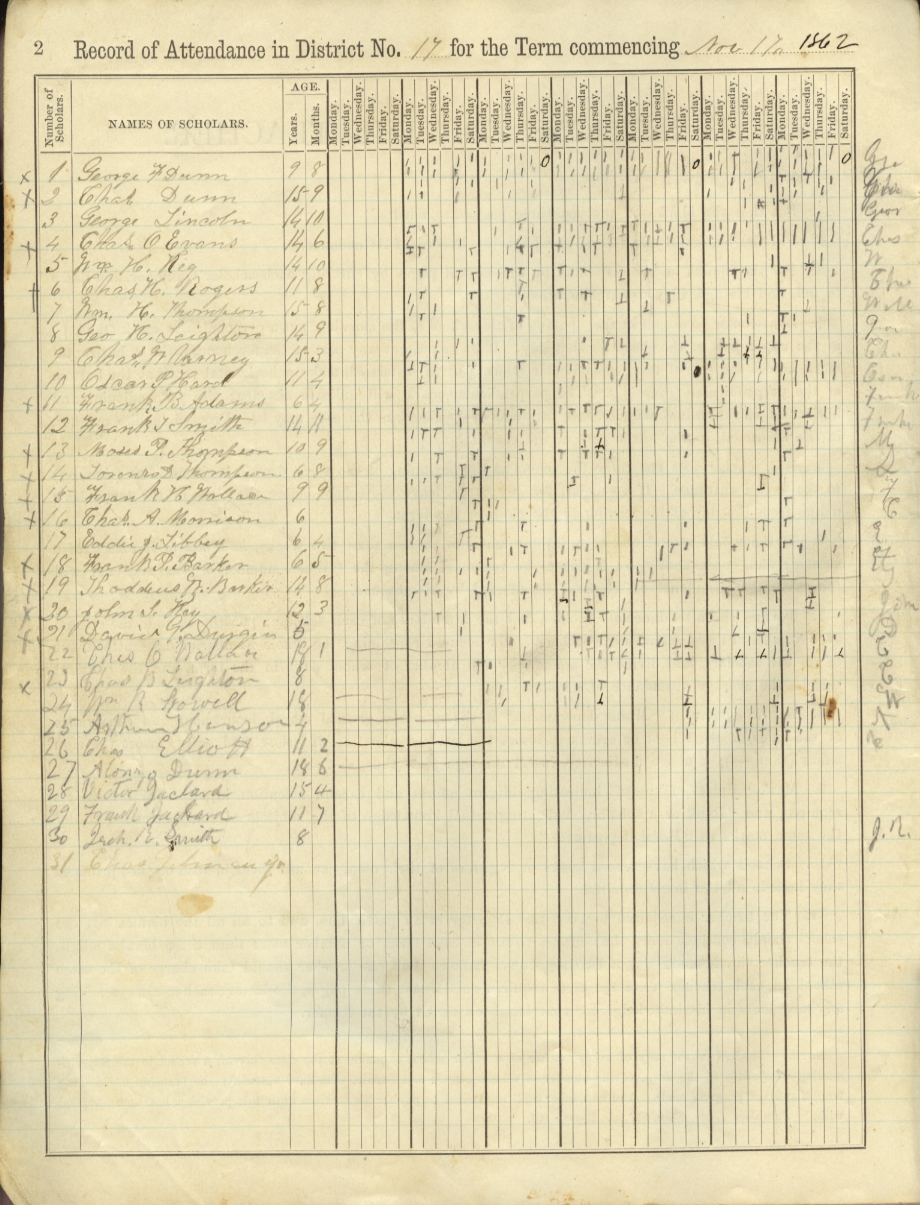 2 Record of Attendance in District No. 17 for the Term commencing Nov 17th 1862
Number of Scholars. NAMES OF SCHOLARS. AGE. Years. Months. Monday. Tuesday. Wednesday. Thursday. Friday. Saturday. Monday. Tuesday. Wednesday. Thursday. Friday. Saturday. Monday. Tuesday. Wednesday. Thursday. Friday. Saturday. Monday. Tuesday. Wednesday. Thursday. Friday. Saturday. Monday. Tuesday. Wednesday. Thursday. Friday. Saturday. Monday. Tuesday. Wednesday. Thursday. Friday. Saturday. Monday. Tuesday. Wednesday. Thursday. Friday. Saturday.
x 1 George F Dunn 9 8
x 2 Chas Dunn 15 9
3 George Lincoln 14 10
+ 4 Chas O Evans 14 6
5 Wm H. Key 14 10
+ 6 Chas H. Rogers 11 8
7 Wm. H. Thompson 15 8
8 Geo H. Leighton 14 9
9 Chas W 15 3
10 Oscar P Hard 11 4
+ 11 Frank B Adams 6 4
12 Frank S Smith 14 11
+ 13 Moses P. Thompson 10 9
+ 14 Thompson 6 8
+ 15 Frank H Wallace 9 9
+ 16 Chas. A. Morrison 6
17 Eddie J. Libbey 6 4
x 18 Frank P. Barker 6 5
+ 19 Thaddeus R. Barker 14 8
x 20 John S. Key 12 3
x 21 David W. Durgin 5
22 Chas C Wallace 18 1
x 23 Chas B Leighton 8
24 Wm R Stowell 18
25 Arthur 4
26 Chas Elliott 11 2
27 Alonzo Dunn 18 6
28 Victor Jaclard 15 4
29 Frank Jackard 11 7
30 Zech. R. Smith 8
31 Chas
J. R.